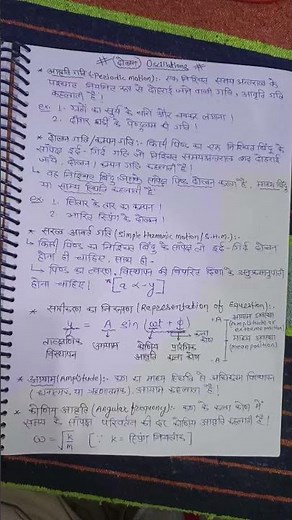 # दोलन Oscillations #
* आवृति गति (periodic motion):- एक निश्चित समय अन्तराल के
पश्चात् नियमित रूप से दोहराई जाने वाली गति, आवृति गति
कहलाती है।
ex: 1. ग्रहों का सूर्य के चारों ओर चक्कर लगाना।
2. दीवार घड़ी के पेण्डुलम की गति।
* दोलन गति / कम्पन गति:- किसी पिंड का एक निश्चित बिंदु के
सापेक्ष इर्द-गिर्द गति जो निश्चित समय अन्तराल बाद दोहराई
जाये, दोलन / कम्पन गति कहलाती है।
↳ वह निश्चित बिंदु जिसके सापेक्ष पिंड दोलन करता है, माध्य बिंदु
या साम्य स्थिति कहलाती है।
ex: 1. सितार के तार का कम्पन।
2. भारित स्प्रिंग के दोलन।
* सरल आवर्त गति (Simple Harmonic motion) (S.H.M.):-
↳ किसी पिंड का निश्चित बिंदु के सापेक्ष ही इर्द-गिर्द दोलन
होना ही चाहिए, साथ ही -
↳ पिंड का त्वरण, विस्थापन की विपरित दिशा के समानुपाती
होना चाहिए। *[a ∝ -y]
* समीकरण का निरूपण (Representation of Equation):-
y = A sin (ωt + ϕ)
तात्क्षणिक विस्थापन
आयाम
कोणीय आवृति
प्रारंभिक कला कोण
कला कोण
(mean position)
* आयाम (Amplitude):- कण का माध्य स्थिति से अधिकतम विस्थापन
(धनात्मक या ऋणात्मक), आयाम कहलाता है।
* कोणीय आवृति (Angular frequency):- कण के कला कोण में
समय के सापेक्ष परिवर्तन की दर कोणीय आवृति कहलाती है।
ω = √k/m [∵ k = स्प्रिंग नियतांक]